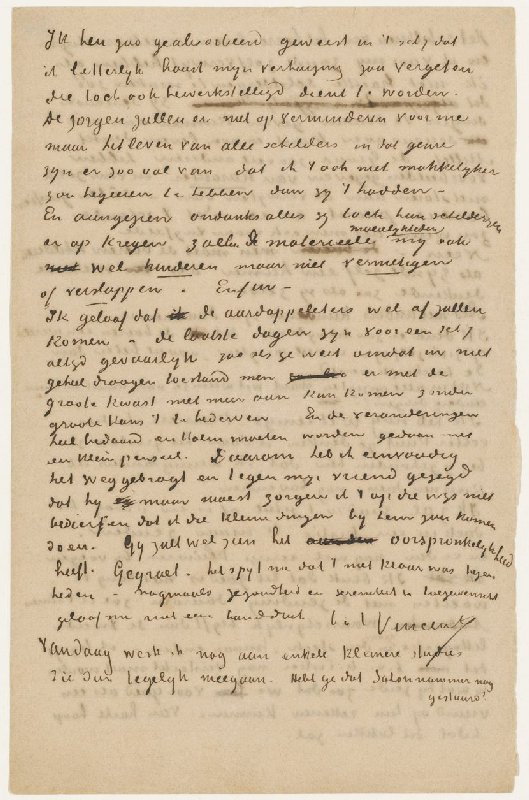 Ik ben zoo geabsorbeerd geweest in 't schij dat
ik letterlijk haast mijn verhuizing zou vergeten
die toch ook bewerkstelligd dient te worden.
De zorgen zullen er niet op verminderen voor me
maar het leven van alle schilders in dat genre
zijn er zoo vol van dat ik 't ook niet makkelijker
zou begeeren te hebben dan zij 't hadden –
En aangezien ondanks alles zij toch hun schilderijen
er op kregen zullen de materieele moeijelijkheden mij ook
wel hinderen maar niet vernietigen
of verslappen. Enfin –
Ik geloof dat de aardappeleters wel af zullen
komen – de laatste dagen zijn voor een schij
altijd gevaarlijk zoo als ge weet omdat in niet
geheel droogen toestand men er met de
groote kwast niet meer aan kan komen zonder
groote kans 't te bederven En de veranderingen
heel bedaard en kalm moeten worden gedaan met
een klein penseel. Daarom heb ik eenvoudig
het weggebragt en tegen mijn vriend gezegd
dat hij maar moest zorgen ik 't op die wijs niet
bedierf en dat ik die kleine dingen bij hem zou komen
doen. Gij zult wel zien het oorspronkelijkheid
heeft. Gegroet – het spijt me dat 't niet klaar was tegen
heden – nogmaals gezondheid en sereniteit u toegewenscht
geloof me met een handdruk t. à t. Vincent
Vandaag werk ik nog aan enkele kleinere studies
die dan tegelijk meegaan. Hebt ge dat Salonnummer nog
gestuurd?